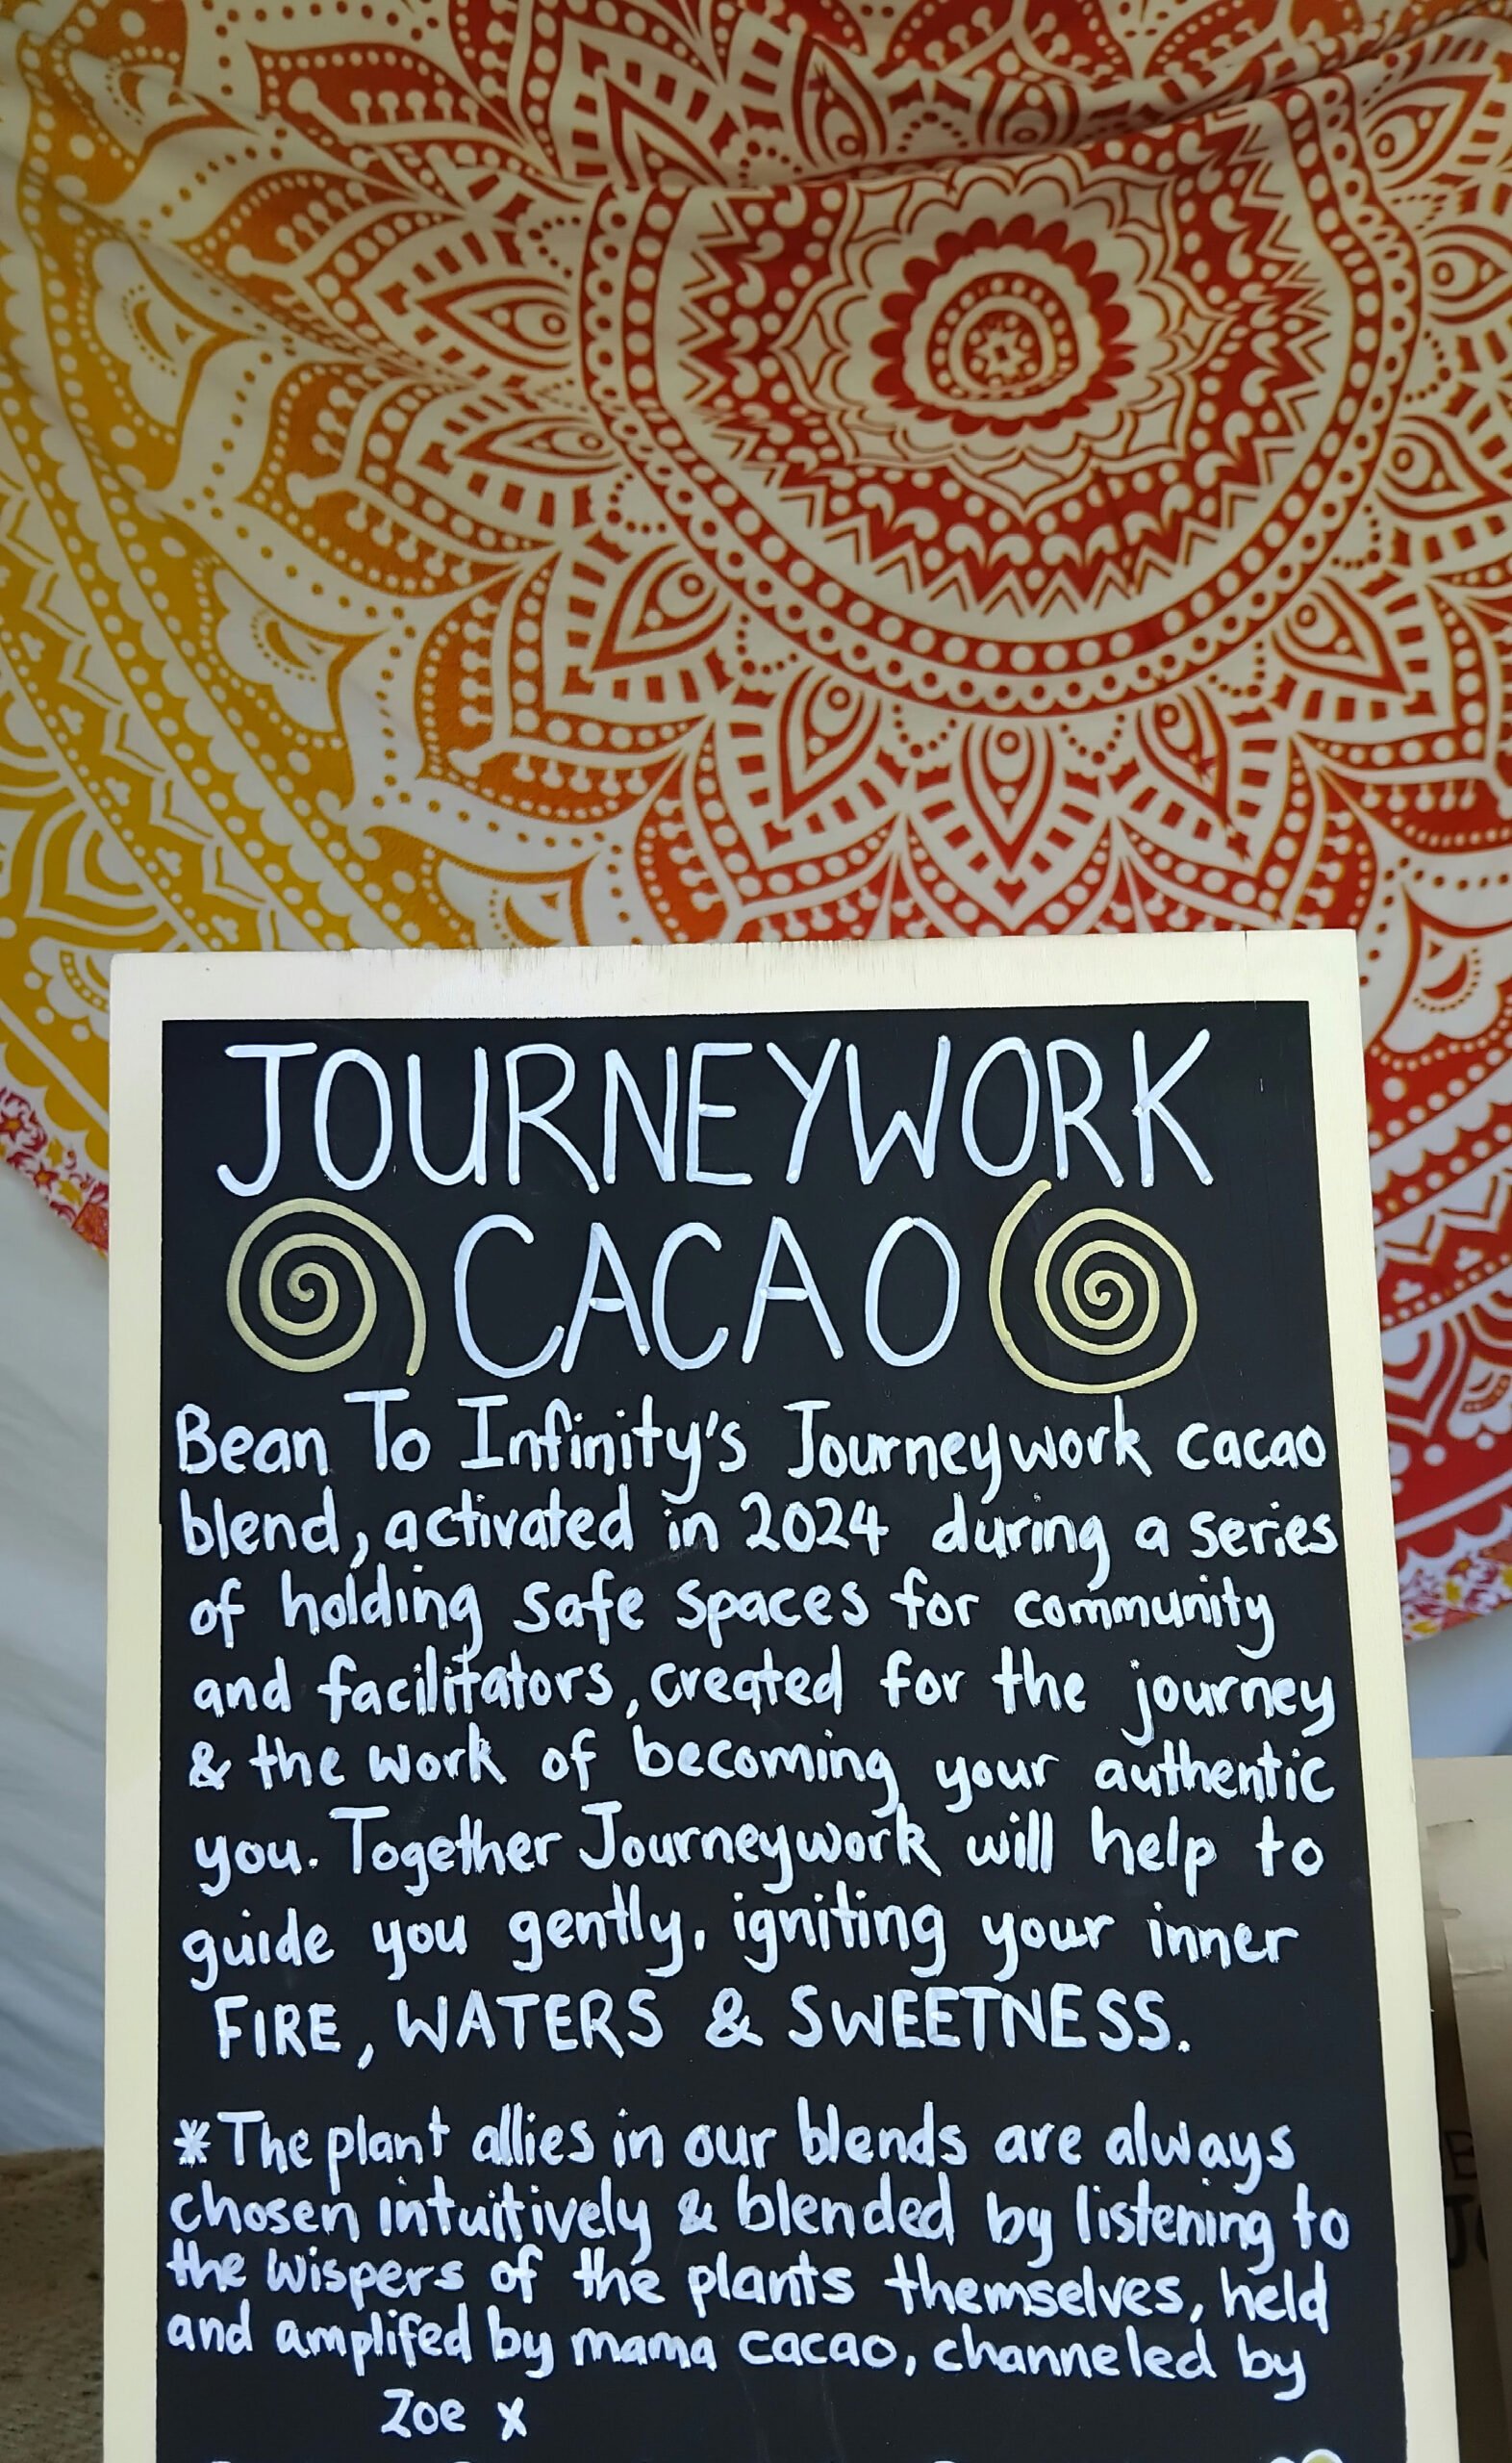 JOURNEYWORK
CACAO
Bean To Infinity's Journeywork cacao
blend, activated in 2024 during a series
of holding safe spaces for community
and facilitators, created for the journey
& the work of becoming your authentic
you. Together Journeywork will help to
guide you gently, igniting your inner
FIRE, WATERS & SWEETNESS.
*The plant allies in our blends are always
chosen intuitively & blended by listening to
the wispers of the plants themselves, held
and amplifed by mama cacao, channeled by
Zoe x